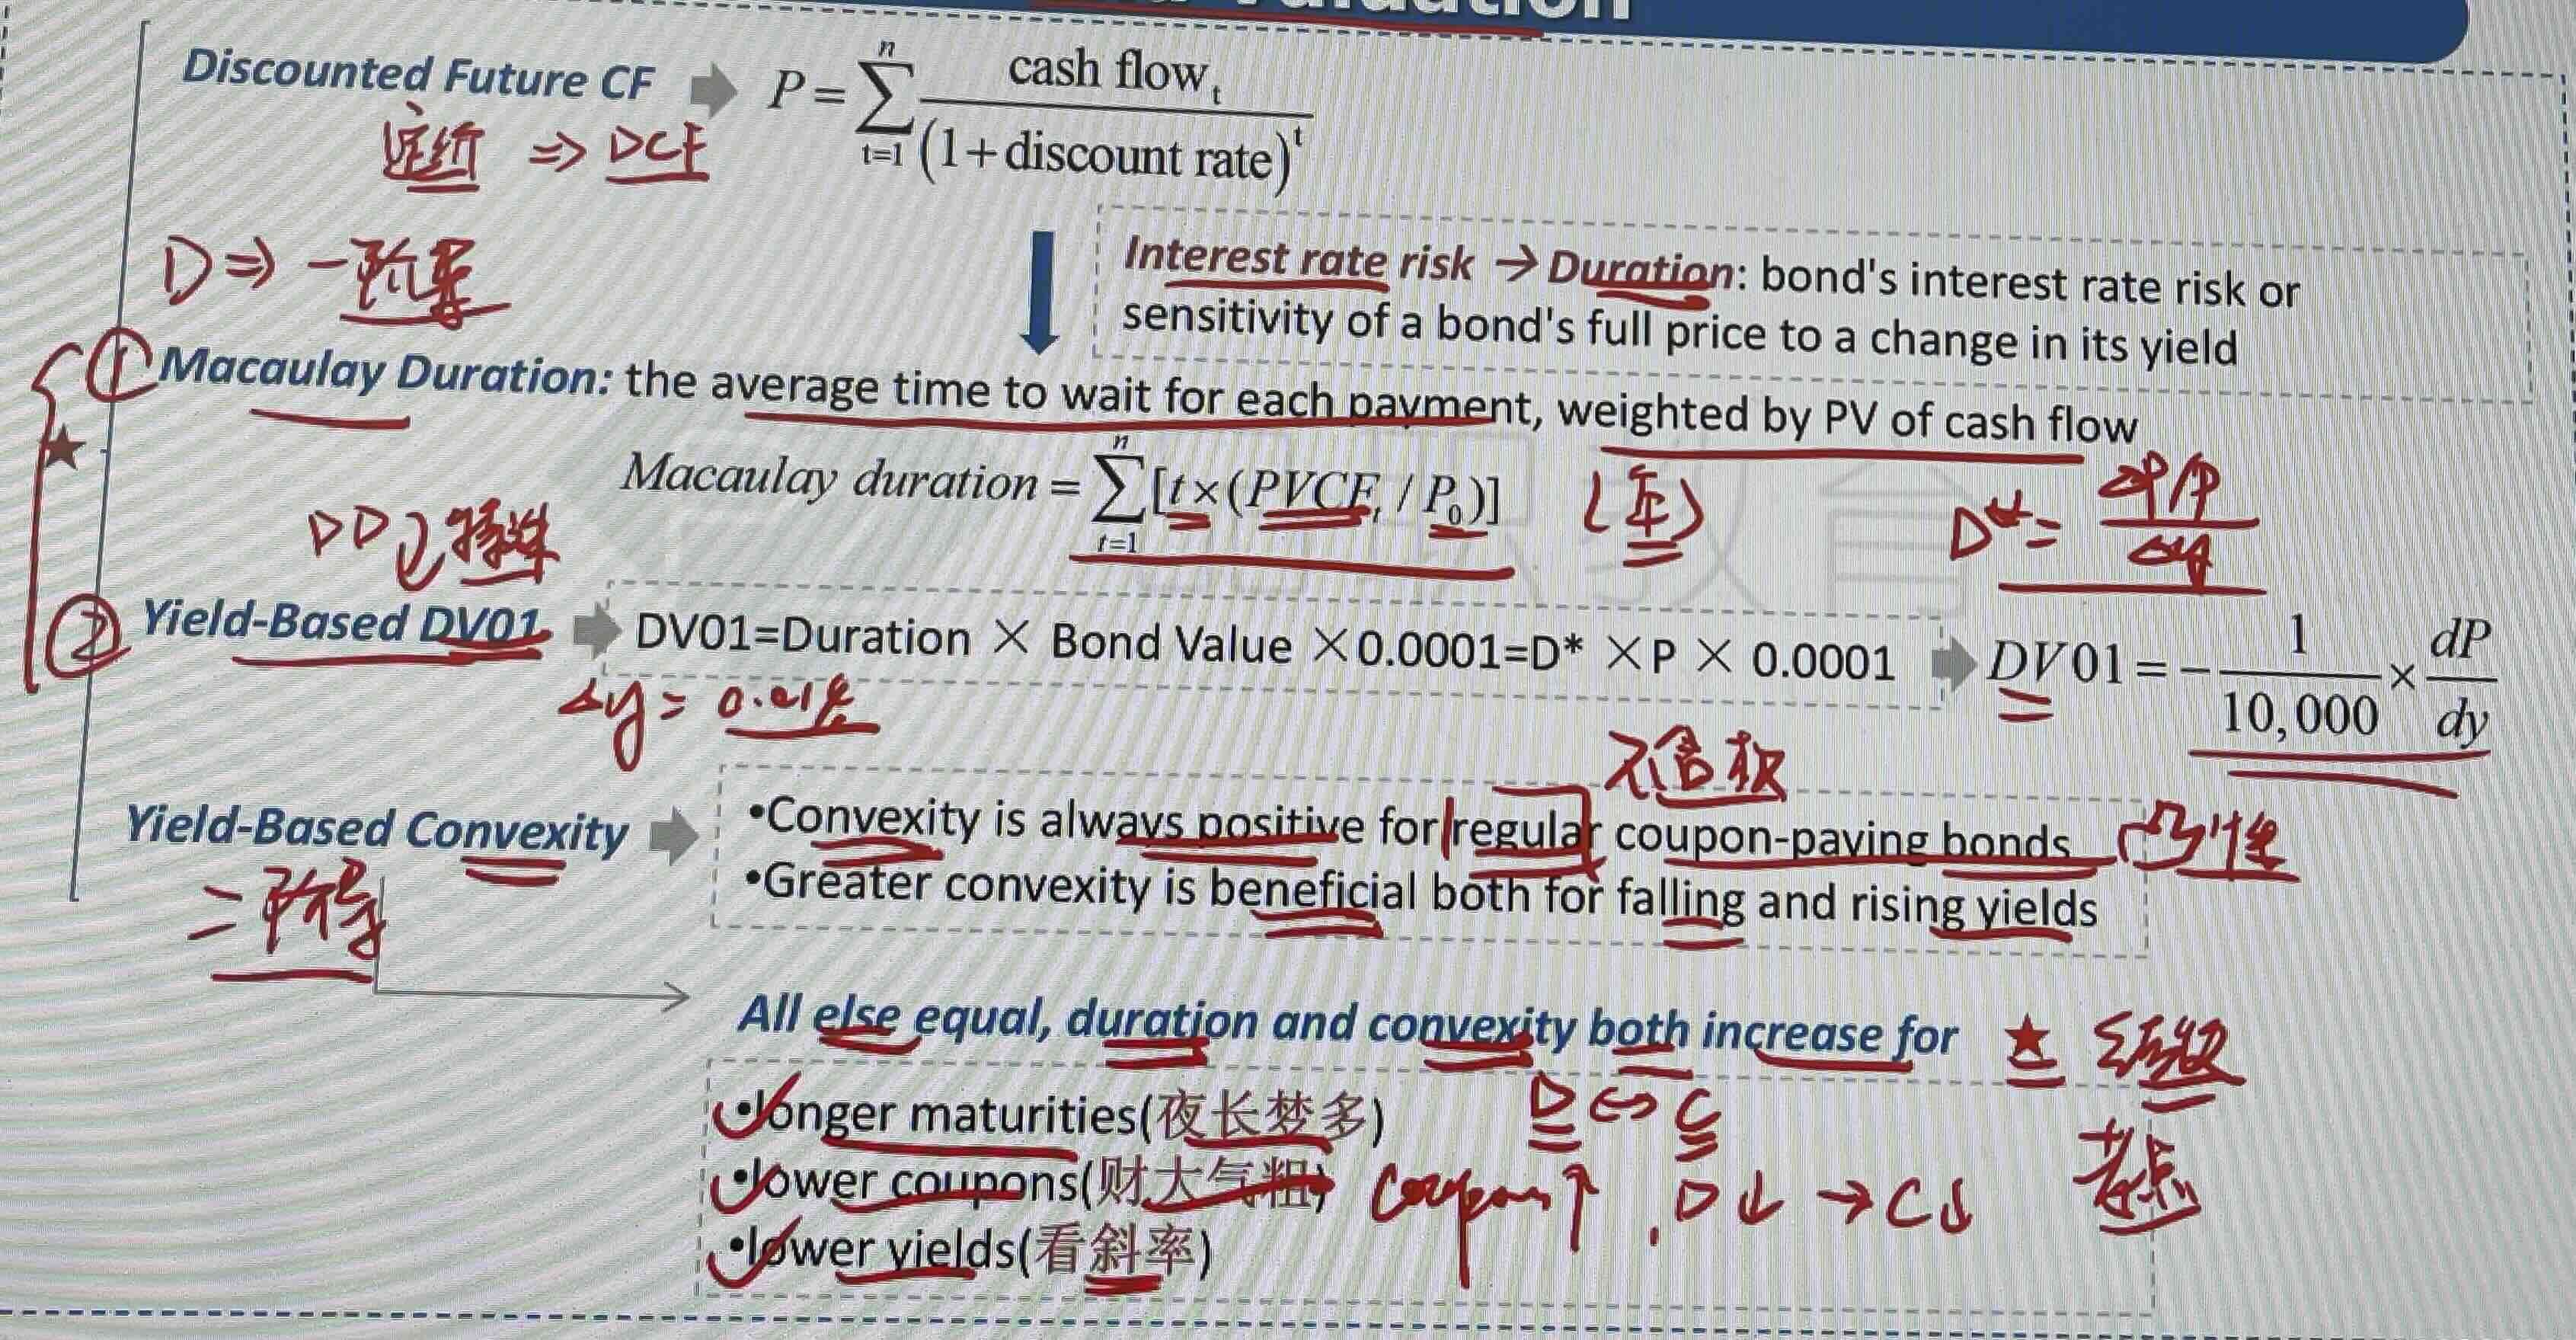 Valuation
Discounted Future CF P = \sum_{t=1}^{n} \frac{cash flow_t}{(1+discount rate)^t}
⇒ DCF
D ⇒ 一阶导
Interest rate risk → Duration: bond's interest rate risk or
sensitivity of a bond's full price to a change in its yield
① Macaulay Duration: the average time to wait for each payment, weighted by PV of cash flow
Macaulay duration = \sum_{t=1}^{n} [t×(PVCF_t / P_0)] (年) D* = \frac{ΔP/P}{Δy}
DD
② Yield-Based DV01 DV01=Duration × Bond Value ×0.0001=D* ×P × 0.0001 DV01 = -\frac{1}{10,000} × \frac{dP}{dy}
Δy = 0.01%
不含权
Yield-Based Convexity •Convexity is always positive for regular coupon-paying bonds 凸性
•Greater convexity is beneficial both for falling and rising yields
二阶导
All else equal, duration and convexity both increase for ★ 结论
•longer maturities(夜长梦多) D ⇔ C
•lower coupons(财大气粗) coupon↑, D↓ → C↓ 考点
•lower yields(看斜率)